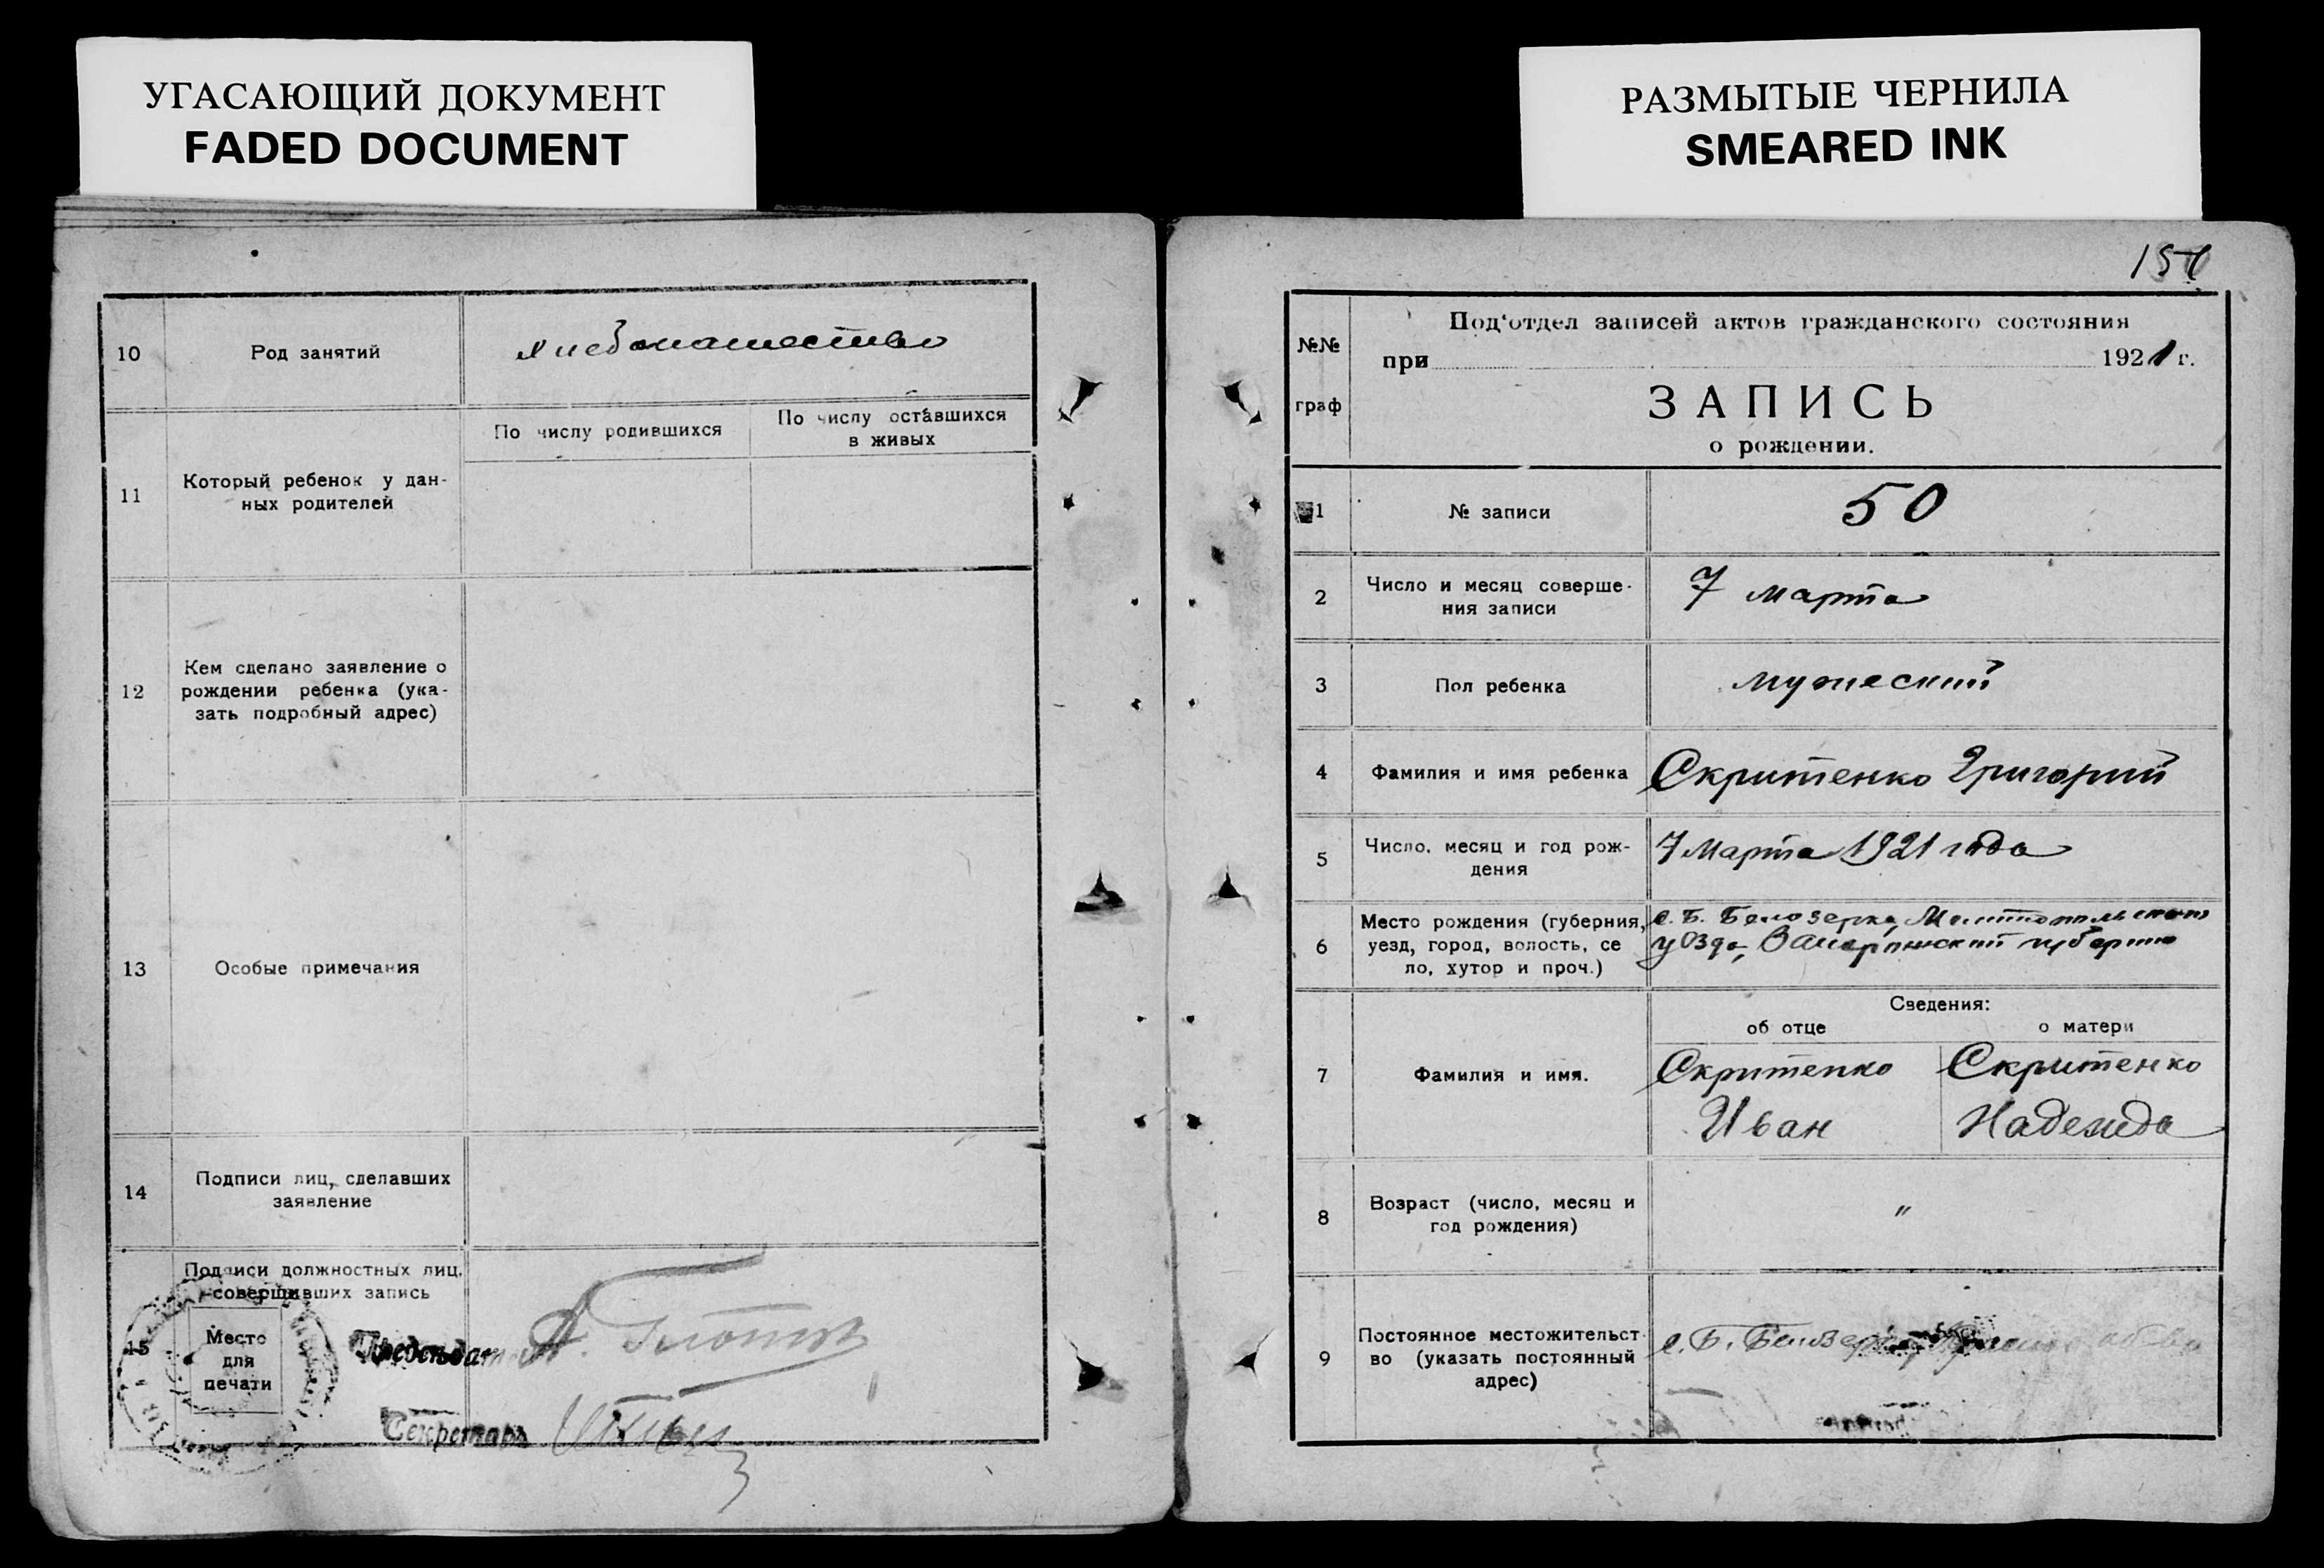 УГАСАЮЩИЙ ДОКУМЕНТ
FADED DOCUMENT
10
Род занятий
хлебопашество
11
Который ребенок у дан-
ных родителей
По числу родившихся
По числу оставшихся
в живых
12
Кем сделано заявление о
рождении ребенка (ука-
зать подробный адрес)
13
Особые примечания
14
Подписи лиц, сделавших
заявление
15
Подписи должностных лиц,
совершивших запись
Место
для
печати
Секретарь
РАЗМЫТЫЕ ЧЕРНИЛА
SMEARED INK
№№
граф
Под'отдел записей актов гражданского состояния
при 1921 г.
ЗАПИСЬ
о рождении.
1
№ записи
50
2
Число и месяц соверше-
ния записи
7 марта
3
Пол ребенка
мужеский
4
Фамилия и имя ребенка
Скритенко Григорий
5
Число, месяц и год рож-
дения
7 Марта 1921 года
6
Место рождения (губерния,
уезд, город, волость, се
ло, хутор и проч.)
с. Б. Белозерка, Мелитопольского
Сведения:
об отце
о матери
7
Фамилия и имя.
Скритенко
Иван
Скритенко
Надежда
8
Возраст (число, месяц и
год рождения)
"
9
Постоянное местожительст-
во (указать постоянный
адрес)
с. Б. Белозерка